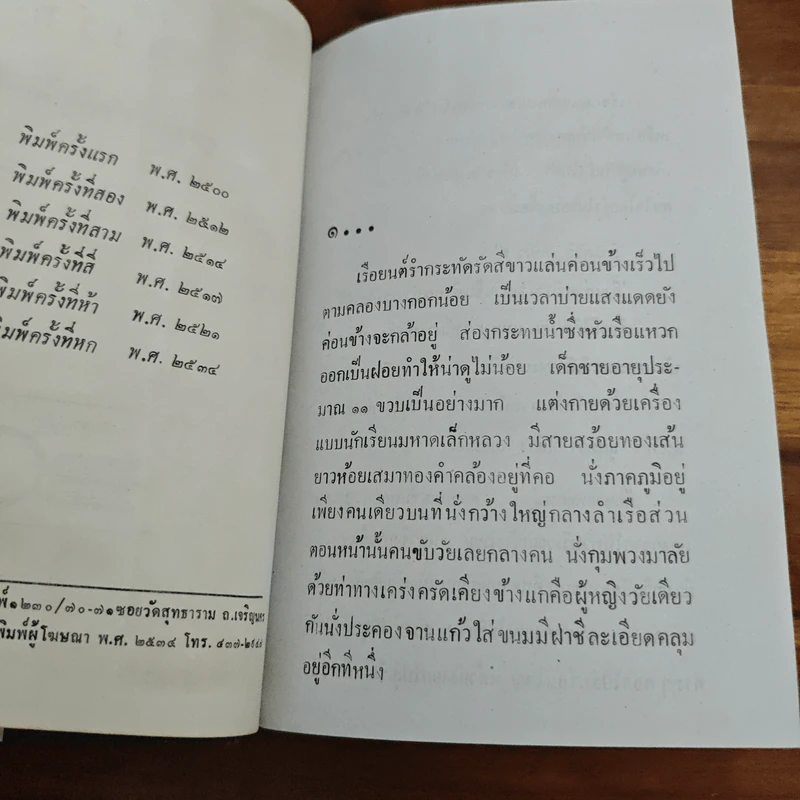 พิมพ์ครั้งแรก พ.ศ. ๒๕๐๐
พิมพ์ครั้งที่สอง พ.ศ. ๒๕๑๒
พิมพ์ครั้งที่สาม พ.ศ. ๒๕๑๔
พิมพ์ครั้งที่สี่ พ.ศ. ๒๕๑๗
พิมพ์ครั้งที่ห้า พ.ศ. ๒๕๒๑
พิมพ์ครั้งที่หก พ.ศ. ๒๕๓๔
๑๒๓๐/๗๐-๗๑ซอยวัดสุทธาราม ถ.เจริญนคร
พิมพ์ผู้โฆษณา พ.ศ. ๒๕๓๔ โทร.
๑...
เรือยนต์รำกระทัดรัดสีขาวแล่นค่อนข้างเร็วไป
ตามคลองบางกอกน้อย เป็นเวลาบ่ายแสงแดดยัง
ค่อนข้างจะกล้าอยู่ ส่องกระทบน้ำซึ่งหัวเรือแหวก
ออกเป็นฝอยทำให้น่าดูไม่น้อย เด็กชายอายุประ-
มาณ ๑๑ ขวบเป็นอย่างมาก แต่งกายด้วยเครื่อง
แบบนักเรียนมหาดเล็กหลวง มีสายสร้อยทองเส้น
ยาวห้อยเสมาทองคำคล้องอยู่ที่คอ นั่งภาคภูมิอยู่
เพียงคนเดียวบนที่นั่งกว้างใหญ่กลางลำเรือส่วน
ตอนหน้านั้นคนขับวัยเลยกลางคน นั่งกุมพวงมาลัย
ด้วยท่าทางเคร่งครัดเคียงข้างแกคือผู้หญิงวัยเดียว
กันนั่งประคองจานแก้วใส่ขนมมีฝาชีละเอียดคลุม
อยู่อีกทีหนึ่ง